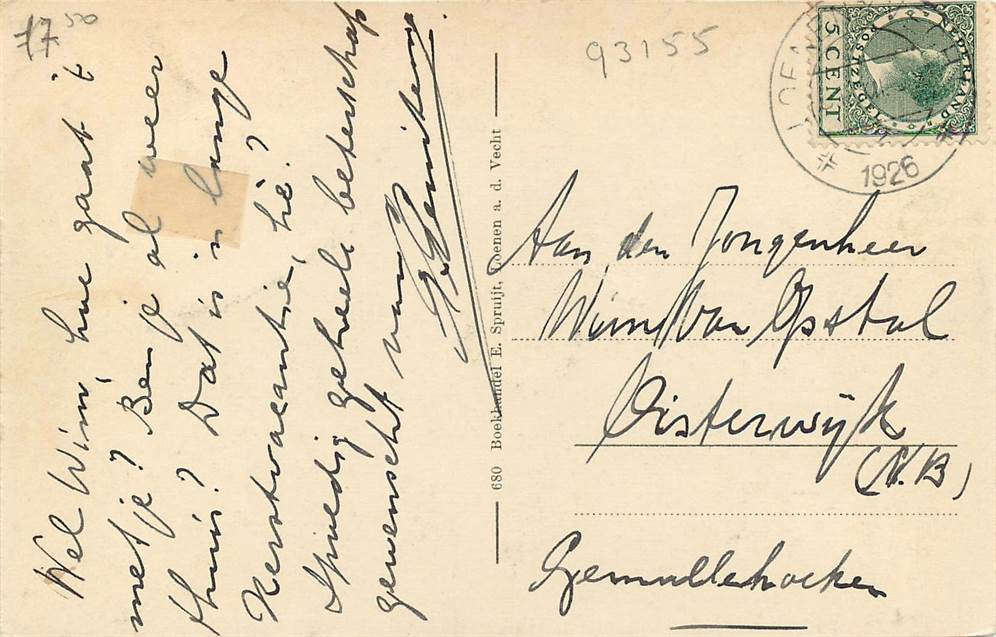 77 50
Wel Wim, hoe gaat 't
met je? Ben je al weer
thuis? Dat is 'n lange
Kerstvacantie, hè?
Spoedig geheele beterschap
gewenscht van
680 Boekhandel E. Spruijt, Loenen a. d. Vecht
93155
NEDERLAND
POSTZEGEL
5 CENT
LOENEN
1926
Aan den Jongenheer
Wim Van Opstal
Oisterwijk
(N.B)
Gemullehoeken